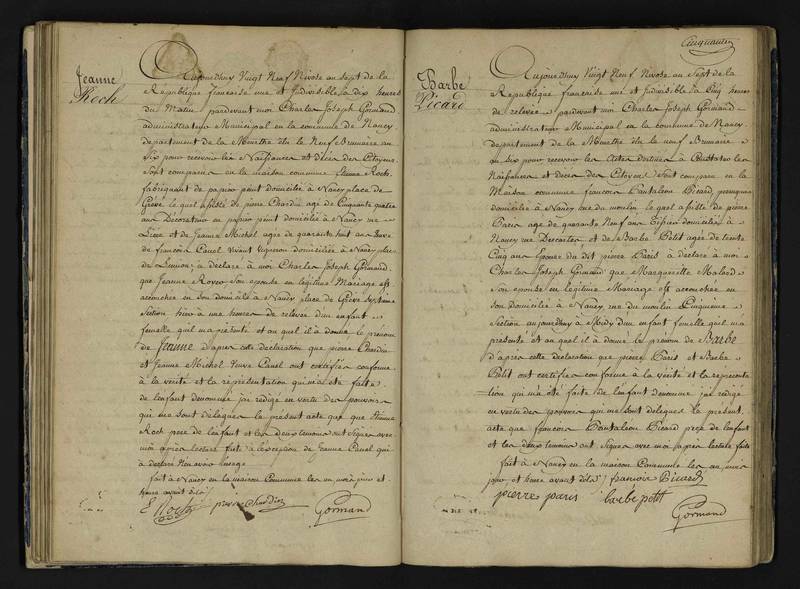 Jeanne
Roch
Aujourdhuy Vingt Neuf Nivose an sept de la
Republique francaise une et Indivisible à dix heures
du Matin pardevant moi Charles Joseph Gormand
administrateur Municipal en la commune de Nancy
departement de la Meurthe élu le Neuf Brumaire an
Six pour recevoir les Naissances et décès des Citoyens
Sont comparus en la maison commune Etienne Roch
fabriquant de papier peint domicilié à Nancy place de
Grève le quel assisté de pierre Chardin agé de Cinquante quatre
ans Décorateur en papier peint domicilié à Nancy rue
et de Jeanne Michel agée de quarante huit ans Veuve
de francois Canel Vivant Vigneron domiciliée à Nancy place
de Lunion, à déclaré à moi Charles Joseph Gormand
que Jeanne Son epouse en legitime Mariage est
accouchée en Son domicile à Nancy place de Grève Septieme
Section hier à une heure de relevée d'un enfant
femelle qui m'a présenté et au quel il à donné le prenom
de Jeanne d'après cette déclaration que pierre Chardin
et Jeanne Michel Veuve Canel ont certifiés conforme
à la vérité et la représentation qui m'a été faite
de l'enfant denommé j'ai rédigé en vertu des pouvoirs
qui me sont délégués le présent acte que que Etienne
Roch pere de l'enfant et les deux temoins ont Signés avec
moi après lecture fait à l'exception de Jeanne Canel qui
à déclaré N'en avoir l'usage
fait à Nancy en la maison Commune les an mois jour et
heure avant dits
E Roch pierre Chardin Gormand
Cinquante
Barbe
Picard
Aujourdhuy Vingt Neuf Nivose an Sept de la
Republique francaise une et Indivisible à Cinq heures
de relevée pardevant moi Charles Joseph Gormand
administrateur Municipal en la commune de Nancy
departement de la Meurthe élu le neuf Brumaire
an Six pour recevoir les Actes destinés à Constater les
Naissances et décès des Citoyens Sont comparu en la
Maison commune francois Pantaleon Picard
domicilié à Nancy rue du moulin le quel assisté de pierre
Paris agé de quarante Neuf ans domicilié à
Nancy rue Descartes et de Barbe Petit agée de trente
Cinq ans Epouse du dit pierre Paris à déclaré à moi
Charles Joseph Gormand que Margueritte Malard
Son epouse en legitime Mariage est accouchée en
Son domicile à Nancy rue du moulin Cinquieme
Section aujourdhuy à Midy d'un enfant femelle quil m'a
présenté et au quel il à donné le prenom de Barbe
d'après cette déclaration que pierre Paris et Barbe
Petit ont certifiés conforme à la vérité et la représenta
tion qui m'a été faite de l'enfant denommé j'ai rédigé
en vertu des pouvoirs qui me sont delegués le présent
acte que francois Pantaleon Picard pere de l'enfant
et les deux temoins ont Signés avec moi après lecture faite
fait à Nancy en la maison Commune les an mois
jour et heure avant dits francois Picard
pierre paris barbe petit
Gormand